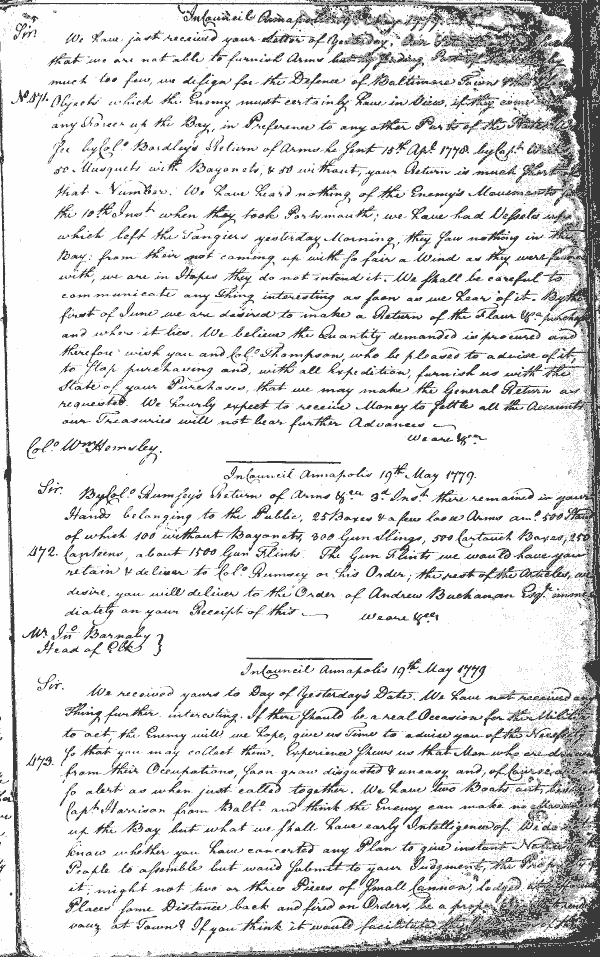 In Council Annapolis 19th May 1779.
Sir.
We have just received your Letter of Yesterday. Our
that we are not able to furnish Arms but
much too few, we design for the Defence of Baltimore Town &
No. 471. Objects which the Enemy must certainly have in View, if they come
any Force up the Bay, in Preference to any other Parts of the State
See by Colo. Bordley's Return of Arms he sent 15th Apl. 1778. by Capt.
50 Musquets with Bayonets, & 50 without, your Return is much short of
that Number. We have heard nothing of the Enemy's Movements
the 10th Inst. when they took Portsmouth; we have had Vessels up
which left the Tangiers yesterday Morning, they saw nothing in the
Bay: from their not coming up with so fair a Wind as they were favored
with, we are in Hopes they do not intend it. We shall be careful to
communicate any Thing interesting as soon as we hear of it. By the
first of June we are desired to make a Return of the Flour &ca. purchased
and where it lies. We believe the Quantity demanded is procured and
therefore wish you and Colo. Thompson, who be pleased to advise of it,
to stop purchasing and, with all Expedition, furnish us with the
State of your Purchases, that we may make the General Return as
requested. We hourly expect to receive Money to settle all the Accounts
our Treasuries will not bear further Advances
We are &ca
Colo. Wm. Hemsley.
In Council Annapolis 19th May 1779.
Sir.
By Colo. Rumsey's Return of Arms &ca 3d. Inst. there remained in your
Hands belonging to the Public, 25 Boxes & a few loose Arms amt. 500 Stand
of which 100 without Bayonets, 300 Gun Slings, 500 Cartouch Boxes, 250
472. Canteens, about 1500 Gun Flints. The Gun Flints we would have you
retain & deliver to Colo. Rumsey or his Order; the rest of the Articles, we
desire, you will deliver to the Order of Andrew Buchanan Esqr. imme
diately on your Receipt of this
We are &ca
Mr. Jno Barnaby
Head of Elk }
In Council Annapolis 19th May 1779
Sir.
We received yours to Day of Yesterday's Date. We have not received any
Thing further interesting. If there should be a real Occasion for the Militia
to act, the Enemy will we hope, give us Time to advise you of the Necessity
so that you may collect them. Experience shews us that Men who are drawn
473. from their Occupations, soon grow disgusted & uneasy and, of Course, are not
so alert as when just called together. We have two Boats out, besides
Capt. Harrison from Balto. and think the Enemy can make no
up the Bay but what we shall have early Intelligence of. We do not
know whether you have concerted any Plan to give instant Notice
People to assemble but would submit to your Judgment, the
it; might not two or three Pieces of small Cannon, lodged at
Places some Distance back and fired on Orders, be a proper
vouz at Town? If you think it would facilitate